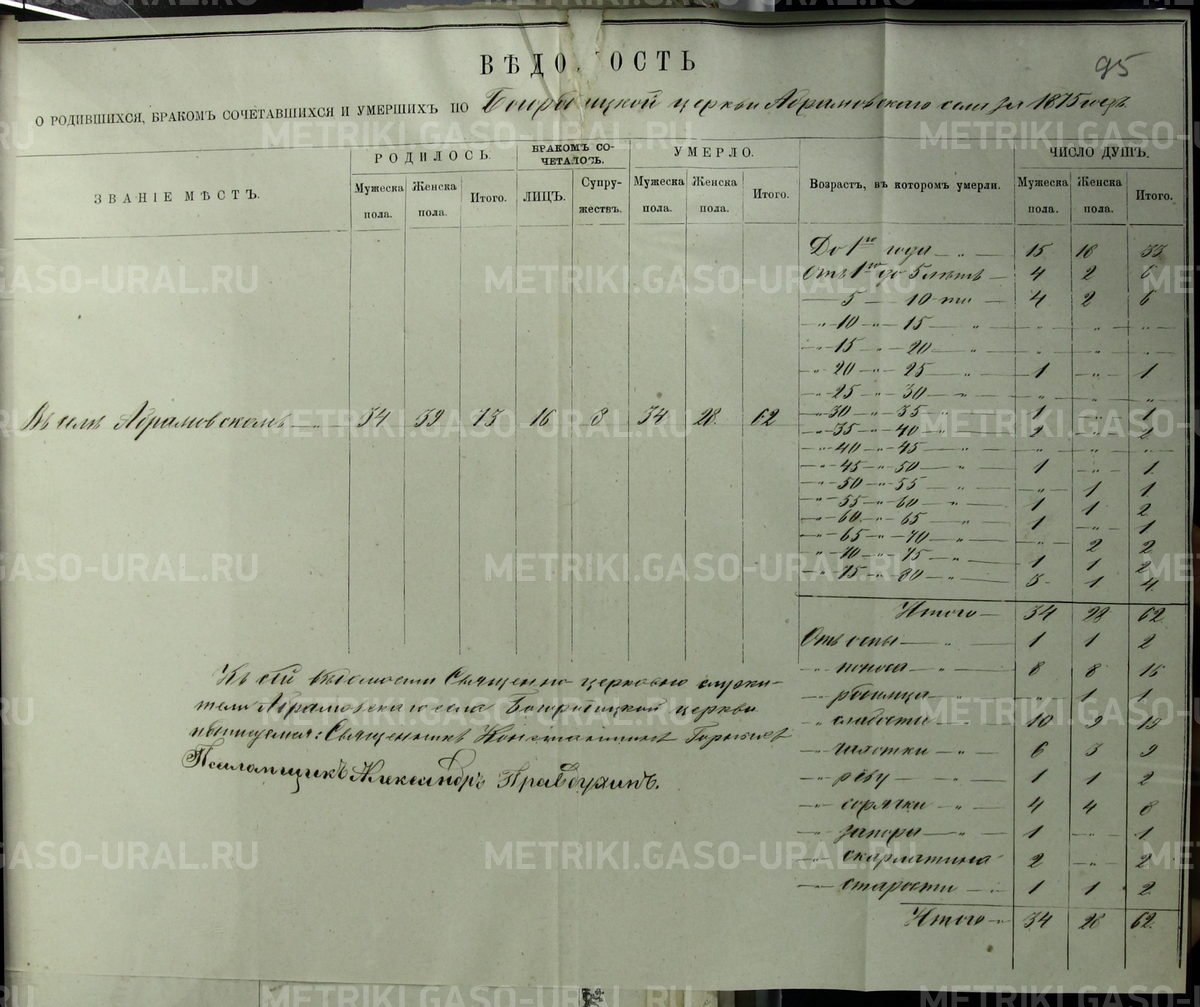 95
ВѢДОМОСТЬ
О РОДИВШИХСЯ, БРАКОМЪ СОЧЕТАВШИХСЯ И УМЕРШИХЪ ПО Богородицкой церкви Абрамовскаго села за 1875 годъ
ЗВАНІЕ МѢСТЪ. РОДИЛОСЬ. БРАКОМЪ СО- УМЕРЛО. Возрастъ, въ которомъ умерли. ЧИСЛО ДУШЪ.
ЧЕТАЛОСЬ.
Мужеска Женска Итого. ЛИЦЪ. Супру- Мужеска Женска Итого. Мужеска Женска Итого.
пола. пола. жествъ. пола. пола. пола. пола.
До 1го года — „ — 15 18 33
Отъ 1го до 5 лѣтъ — 4 2 6
— 5 — 10 ти — 4 2 6
— „ 10 — „ — 15 — „ — „ — „ — „
— „ 15 — „ — 20 — „ — „ — „ — „
— „ 20 — „ — 25 — „ — 1 — „ — 1
— „ 25 — „ — 30 — „ — „ — „ — „
Въ селѣ Абрамовскомъ — „ — 34 39 73 16 8 34 28 62
— „ 30 — „ — 35 „ — 1 — „ — 1
— „ 35 — „ — 40 — „ — 2 — „ — 2
— „ 40 — „ — 45 — „ — „ — „ — „
— „ 45 — „ — 50 — „ — 1 — „ — 1
— „ 50 — „ — 55 — „ — „ 1 1
— „ 55 — „ — 60 — „ — 1 1 2
— „ 60 — „ — 65 — „ — 1 — „ — 1
— „ 65 — „ — 70 — „ — „ 2 2
— „ 70 — „ — 75 — „ — 1 1 2
— „ 75 — „ — 80 — „ — 3 1 4
Итого — 34 28 62
Отъ оспы — „ — 1 1 2
— „ поноса — „ — 8 8 16
— „ родимца — „ — „ 1 1
— „ слабости — „ — 10 9 19
— „ — „ — 6 3 9
— „ — „ — 1 1 2
— „ горячки — „ — 4 4 8
— „ запоры — „ — 1 — „ — 1
— „ скарлатина 2 — „ — 2
— „ старости — „ 1 1 2
Итого — „ — 34 28 62
Къ сей вѣдомости Священно церковно служи-
тели Абрамовскаго села Богородицкой церкви
подписуемся: Священникъ Константинъ
Псаломщикъ Александръ Правдухинъ.
METRIKI.GASO-URAL.RU